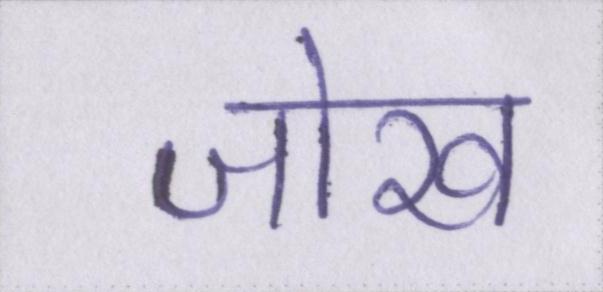 जोख